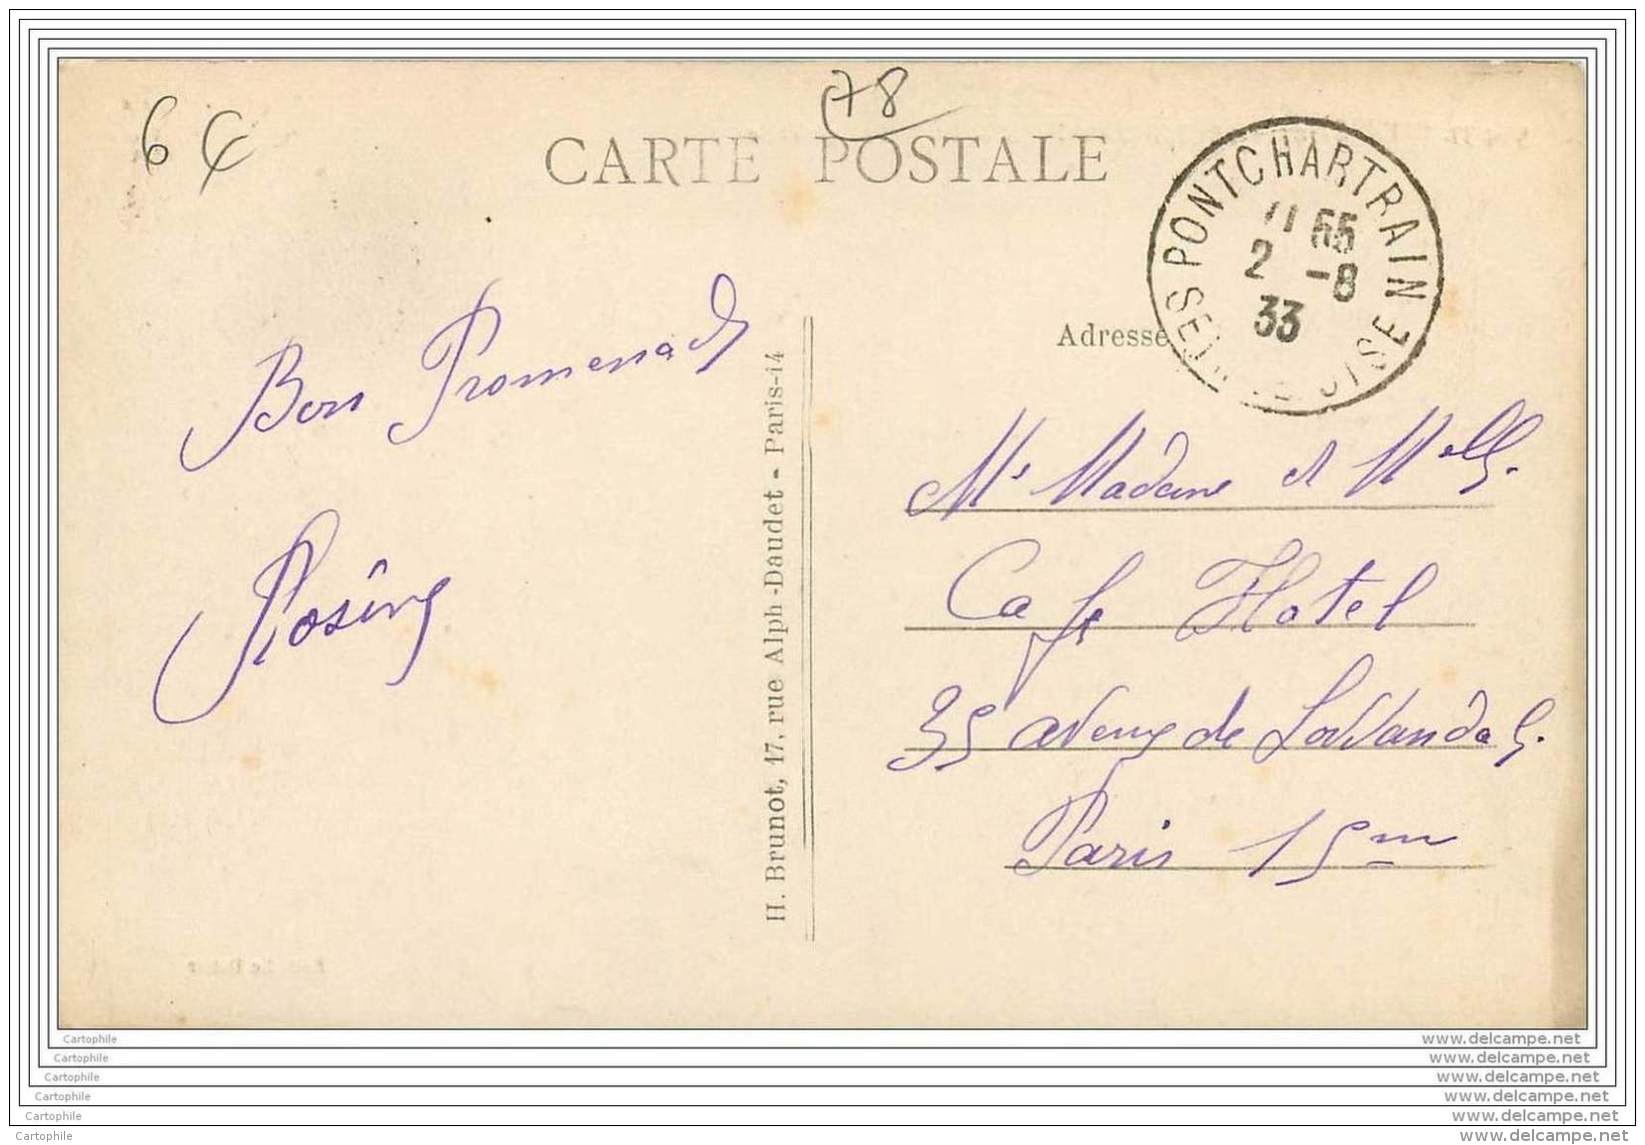 6 €
78
CARTE POSTALE
PONTCHARTRAIN
11 55
2 -8
33
SEINE ET OISE
Adresse
Bons Promenade
H. Brunot, 17, rue Alph-Daudet - Paris-14
Mr Madame et Melle.
Cafe Hotel
35 avenue de
Paris 15 me
Cartophile
www.delcampe.net
Cartophile
www.delcampe.net
Cartophile
www.delcampe.net
Cartophile
www.delcampe.net
Cartophile
www.delcampe.net
Cartophile
www.delcampe.net